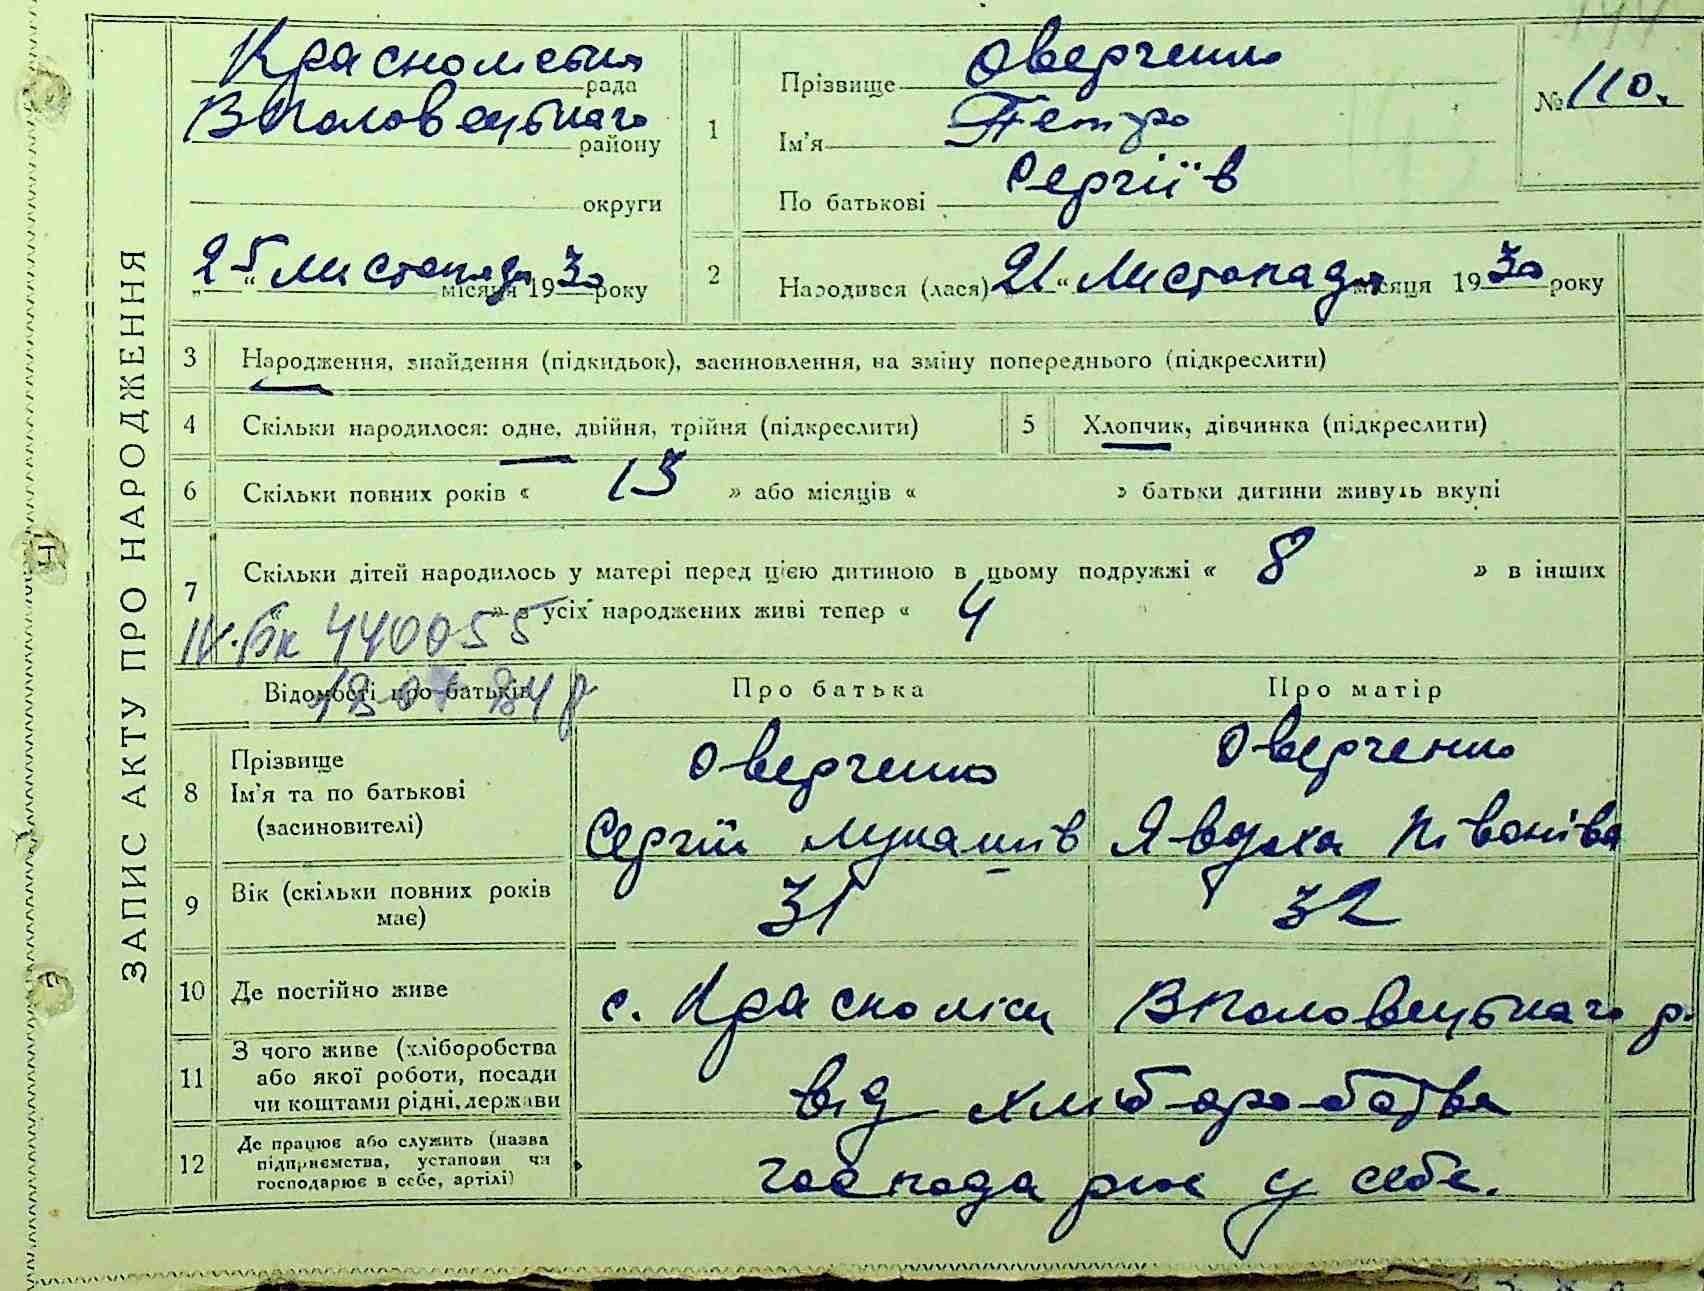 ЗАПИС АКТУ ПРО НАРОДЖЕННЯ
Краснолiська рада
ВПоловецького району
округи
„25“ Листопада місяця 1930 року
1
Прізвище Оверченко
Ім'я Петро
По батькові Сергіїв
№ 110.
2
Народився (лася) „21“ Листопада місяця 1930 року
3 Народження, знайдення (підкидьок), засиновлення, на зміну попереднього (підкреслити)
4 Скільки народилося: одне, двійня, трійня (підкреслити)
5 Хлопчик, дівчинка (підкреслити)
6 Скільки повних років « 13 » або місяців « » батьки дитини живуть вкупі
7 Скільки дітей народилось у матері перед цією дитиною в цьому подружжі « 8 » в інших
« » з усіх народжених живі тепер « 4
440055
Відомості про батьків
Про батька
Про матір
8 Прізвище
Ім'я та по батькові
(засиновителі)
Оверченко
Сергій Лукашів
Оверченко
Явдоха Півонівна
9 Вік (скільки повних років
має)
31
32
10 Де постійно живе
с. Красноліси ВПоловецького р.
11 З чого живе (хліборобства
або якої роботи, посади
чи коштами рідні, держави
від хліборобства
12 Де працює або служить (назва
підприємства, установи чи
господарює в себе, артілі)
господарює у себе.